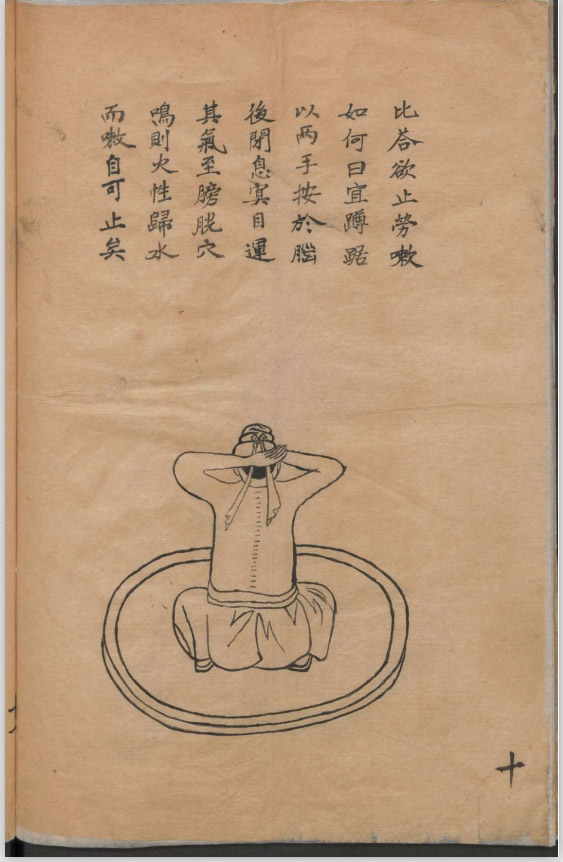 比荅欲止劳嗽
如何曰宜蹲踞
以两手按於腦
後閉息冥目運
其氣至膀胱穴
鳴則火性歸水
而嗽自可止矣
十